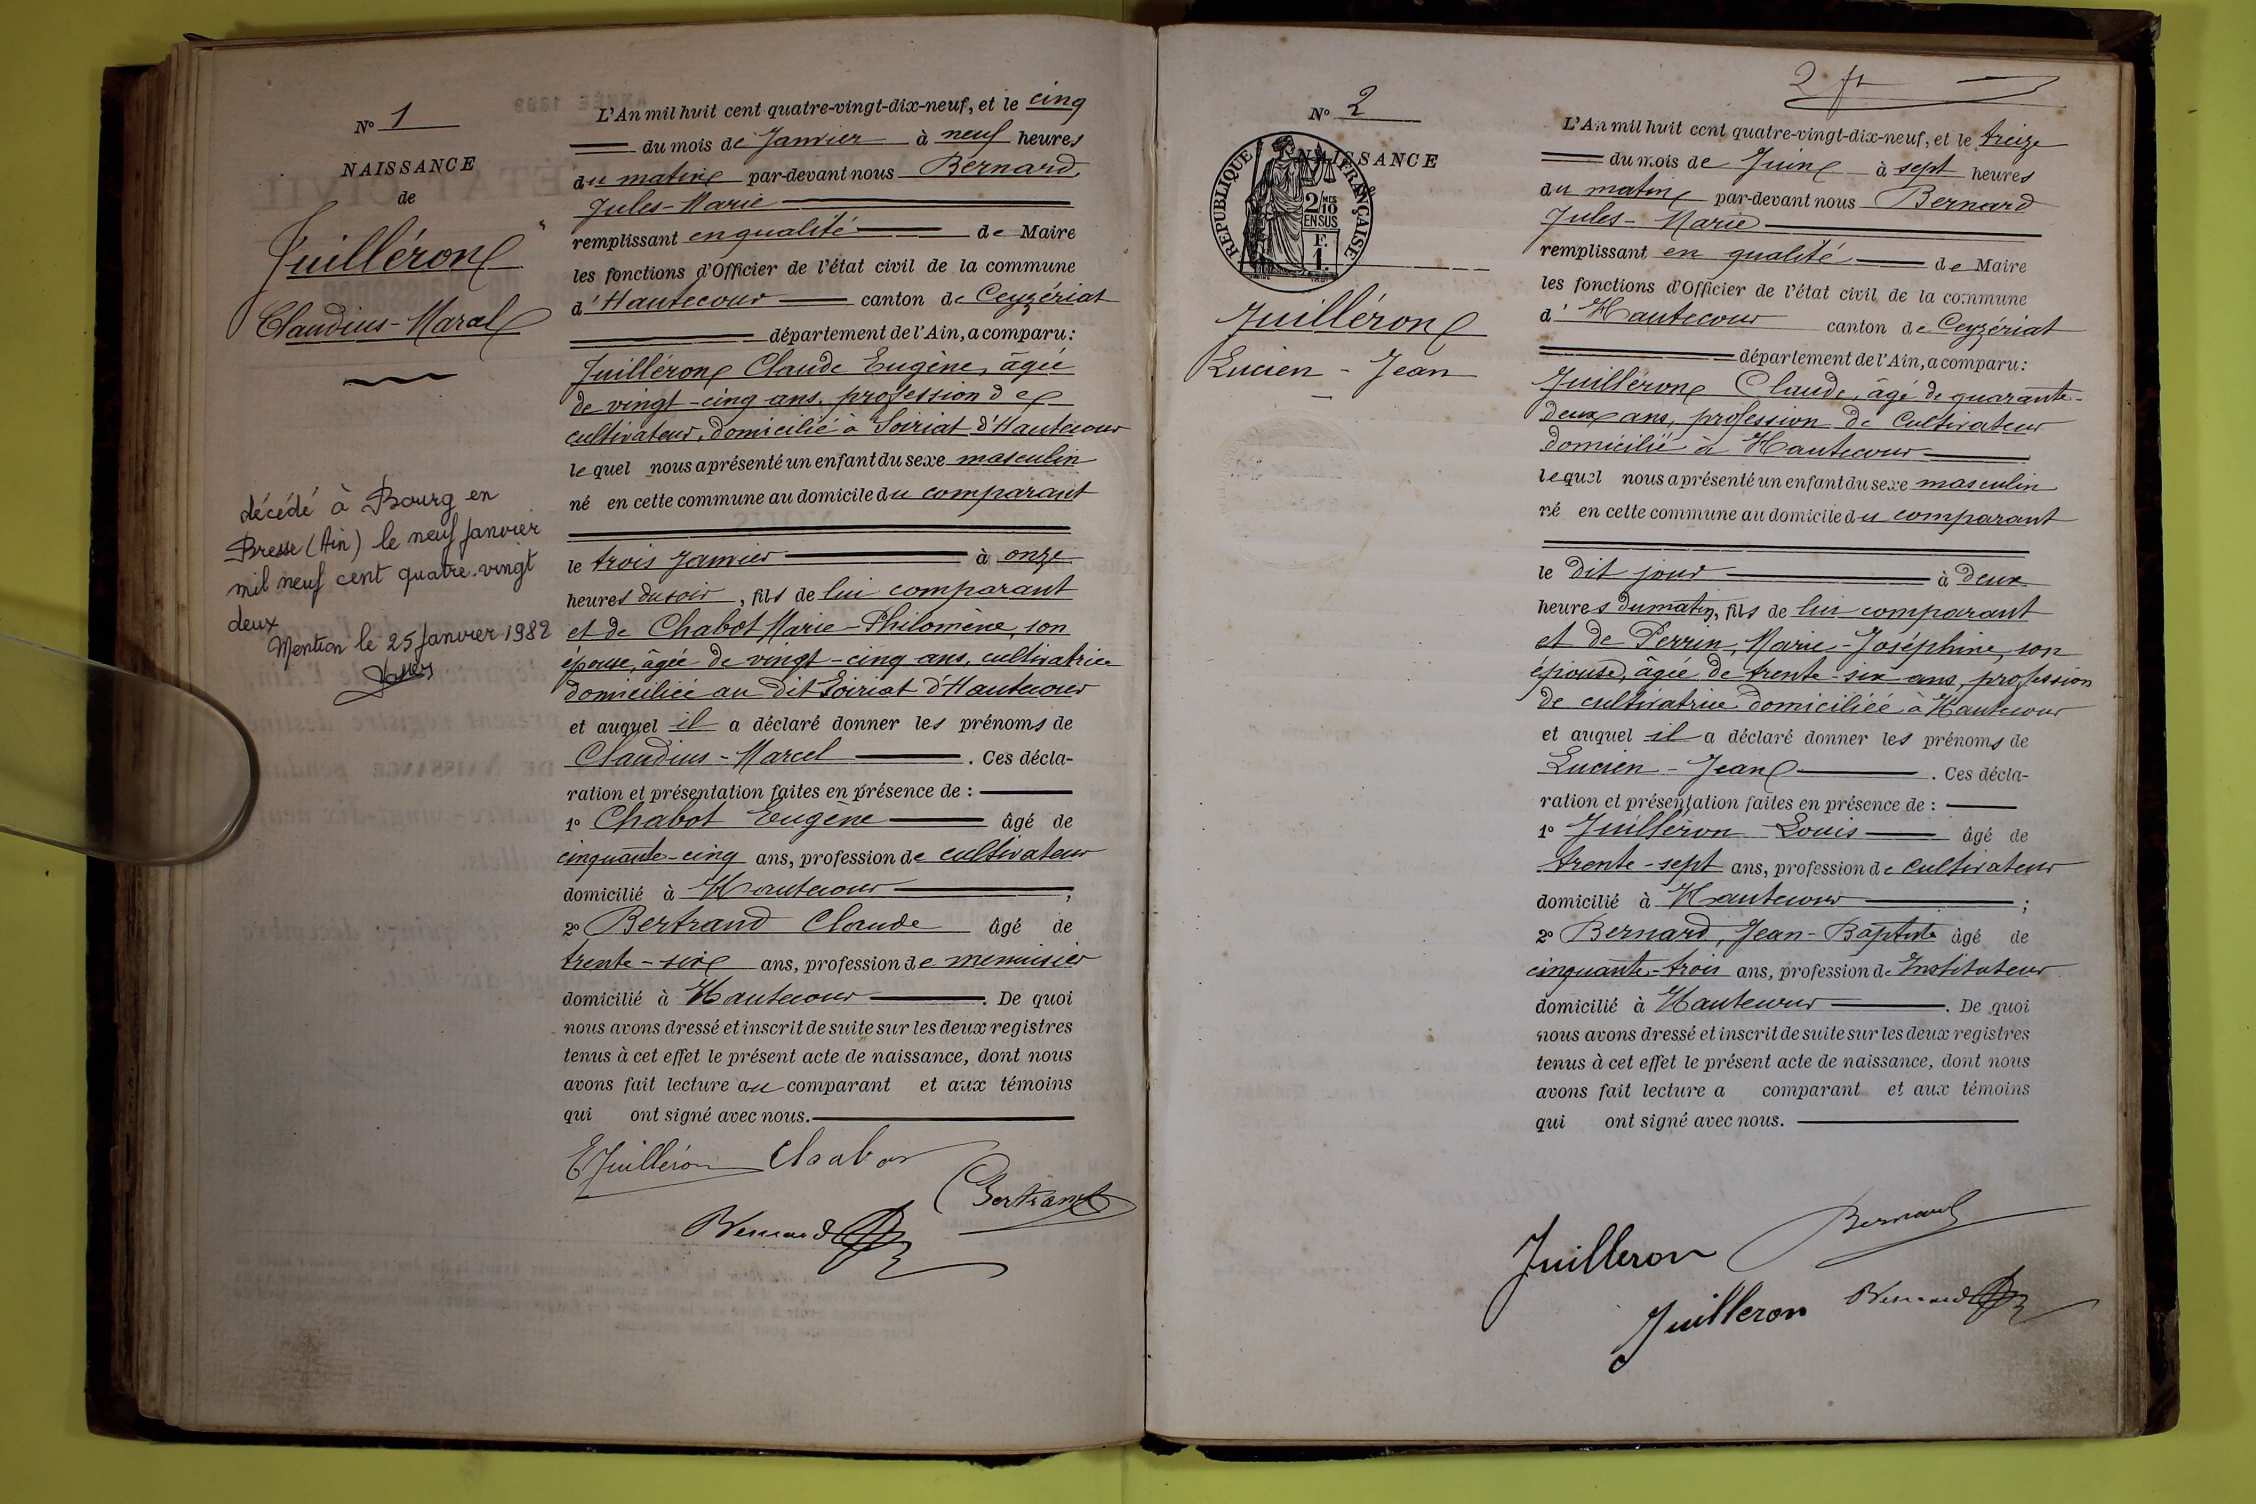 N° 1
NAISSANCE
de
Juilléron
Claudius-Marcel
décédé à Bourg en
Bresse (Ain) le neuf janvier
mil neuf cent quatre-vingt
deux
Mention le 25 Janvier 1982
L'An mil huit cent quatre-vingt-dix-neuf, et le cinq
du mois de Janvier à neuf heures
du matin par-devant nous Bernard,
Jules-Marie
remplissant en qualité de Maire
les fonctions d'Officier de l'état civil de la commune
d'Hautecour canton de Ceyzériat
département de l'Ain, a comparu :
Juilléron Claude Eugène, âgé
de vingt-cinq ans, profession de
cultivateur, domicilié à Soiriat d'Hautecour
lequel nous a présenté un enfant du sexe masculin
né en cette commune au domicile du comparant
le trois Janvier à onze
heures du soir, fils de lui comparant
et de Chabot Marie-Philomène, son
épouse, âgée de vingt-cinq ans, cultivatrice
domiciliée au dit Soiriat d'Hautecour
et auquel il a déclaré donner les prénoms de
Claudius-Marcel. Ces décla-
ration et présentation faites en présence de :
1° Chabot Eugène âgé de
cinquante-cinq ans, profession de cultivateur
domicilié à Hautecour ;
2° Bertrand Claude âgé de
trente-six ans, profession de menuisier
domicilié à Hautecour. De quoi
nous avons dressé et inscrit de suite sur les deux registres
tenus à cet effet le présent acte de naissance, dont nous
avons fait lecture au comparant et aux témoins
qui ont signé avec nous.
E Juilléron Chabot
Bertrand
Bernard
2 ft
N° 2
NAISSANCE
RÉPUBLIQUE FRANÇAISE
2/10 MES
EN SUS
F.
1.
Juilléron
Lucien-Jean
L'An mil huit cent quatre-vingt-dix-neuf, et le treize
du mois de Juin à sept heures
du matin par-devant nous Bernard
Jules-Marie
remplissant en qualité de Maire
les fonctions d'Officier de l'état civil de la commune
d'Hautecour canton de Ceyzériat
département de l'Ain, a comparu :
Juilléron Claude, âgé de quarante-
deux ans, profession de cultivateur
domicilié à Hautecour
lequel nous a présenté un enfant du sexe masculin
né en cette commune au domicile du comparant
le dit jour à deux
heures du matin, fils de lui comparant
et de Perrin, Marie-Joséphine, son
épouse, âgée de trente-six ans, profession
de cultivatrice domiciliée à Hautecour
et auquel il a déclaré donner les prénoms de
Lucien-Jean. Ces décla-
ration et présentation faites en présence de :
1° Juilléron Louis âgé de
trente-sept ans, profession de cultivateur
domicilié à Hautecour ;
2° Bernard, Jean-Baptiste âgé de
cinquante-trois ans, profession de Instituteur
domicilié à Hautecour. De quoi
nous avons dressé et inscrit de suite sur les deux registres
tenus à cet effet le présent acte de naissance, dont nous
avons fait lecture a comparant et aux témoins
qui ont signé avec nous.
Juilleron Bernard
Juilleron Bernard